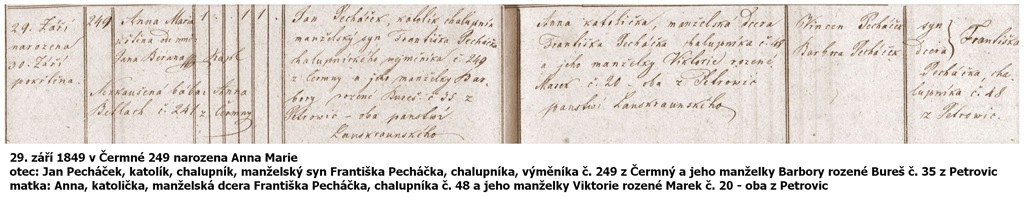 29. Září
narozena
30. Září
pokřtěna.
249
Anna Marie
křtěna ode mne
Jana Berana
Kapl
Nezkoušená baba Anna
Betlach č. 241 z Čermny
1. 1 1.
Jan Pecháček, katolík chalupník
manželský syn Františka Pecháčka
chalupnického vejminíka č. 249
z Čermny a jeho manželky Bar-
bory rozené Bureš č. 35 z
Petrowic - oba panství
Lanskraunského
Anna katolička, manželska dcera
Františka Pecháčka chalupníka č. 48
a jeho manželky Viktorie rozené
Marek č. 20 - oba z Petrowic
panství Lanskraunského
Vincen Pecháček
Barbora Pecháček
syn
dcera
Františka
Pecháčka, cha-
lupníka č. 48
z Petrowic.
29. září 1849 v Čermné 249 narozena Anna Marie
otec: Jan Pecháček, katolík, chalupník, manželský syn Františka Pecháčka, chalupníka, výměníka č. 249 z Čermný a jeho manželky Barbory rozené Bureš č. 35 z Petrovic
matka: Anna, katolička, manželská dcera Františka Pecháčka, chalupníka č. 48 a jeho manželky Viktorie rozené Marek č. 20 - oba z Petrovic